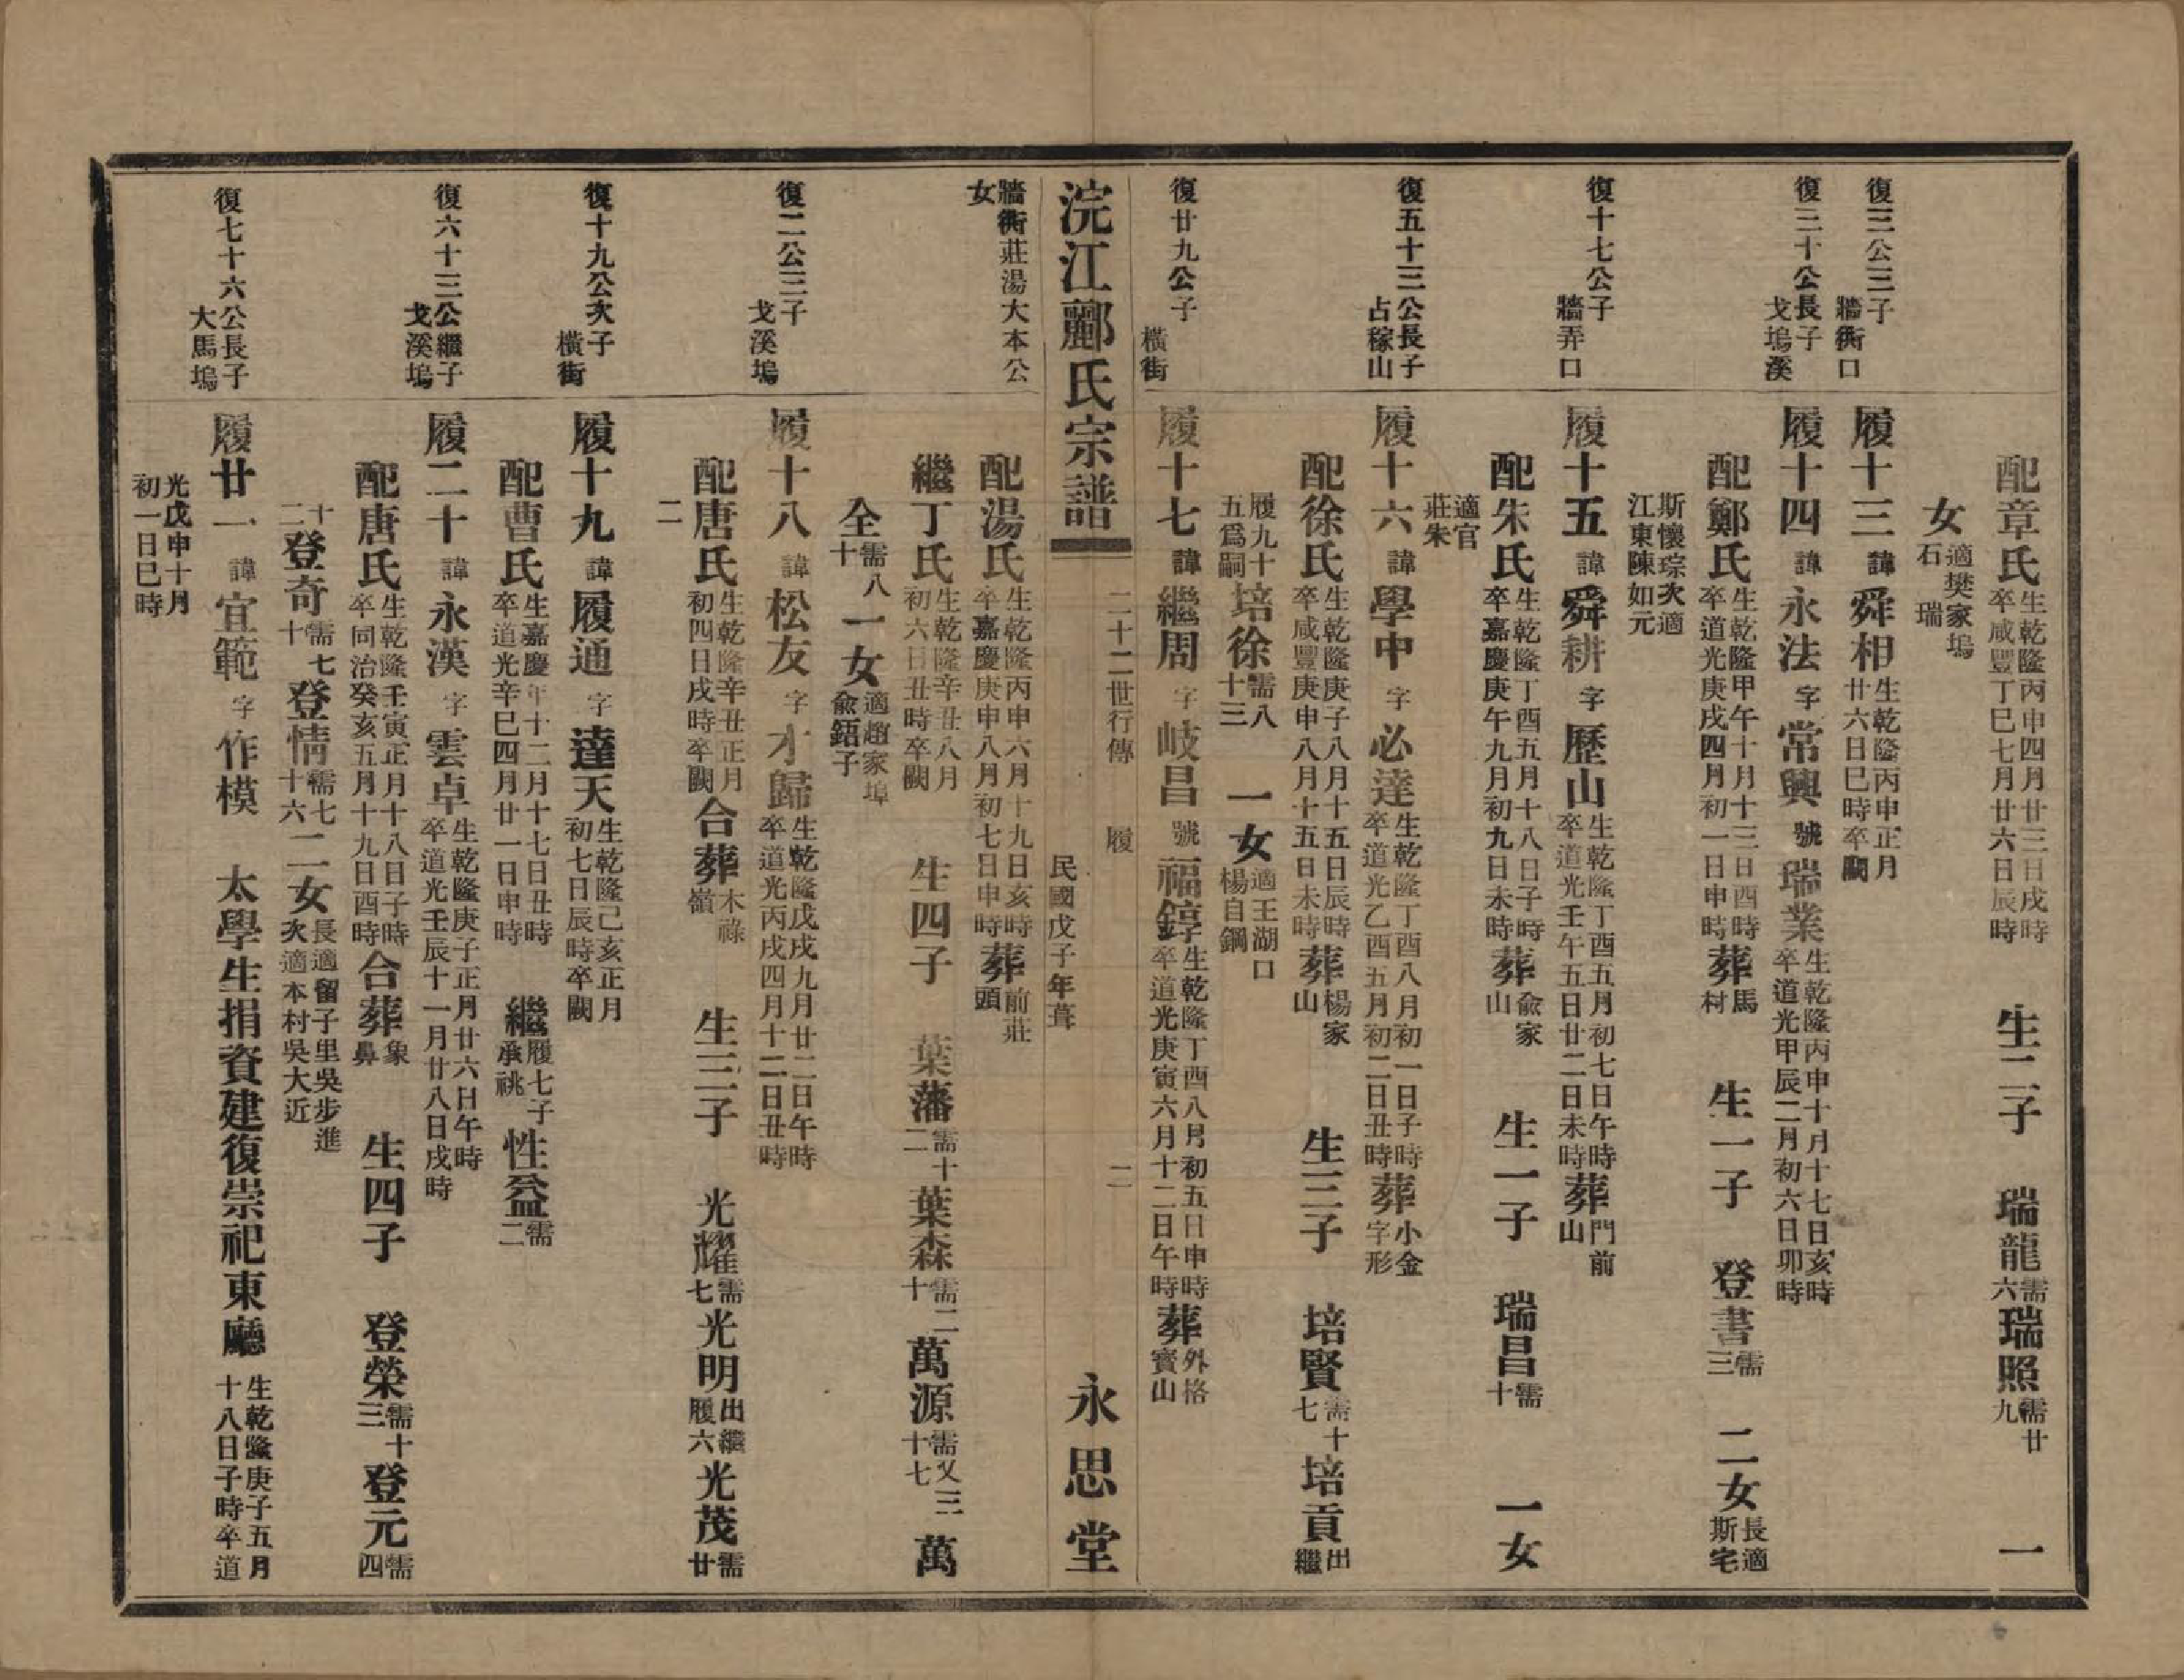 配章氏生乾隆丙申四月廿三日戌時卒咸豐丁巳七月廿六日辰時　生二子　瑞龍需六瑞照需廿九　一
女適樊家塢石瑞
復三公三子牆衖口
履十三諱舜相生乾隆丙申正月廿六日巳時卒闕
復三十公長子戈塢溪
履十四諱永法字常興號瑞業生乾隆丙申十月十七日亥時卒道光甲辰二月初六日卯時
配鄭氏生乾隆甲午十月十三日酉時卒道光庚戌四月初一日申時葬馬村　生一子　登書需三　二女長適斯宅
斯懷琮次適江東陳如元
復十七公子牆弄口
履十五諱舜耕字歷山生乾隆丁酉五月初七日午時卒道光壬午五日廿二日未時葬門前山
配朱氏生乾隆丁酉五月十八日子時卒嘉慶庚午九月初九日未時葬俞家山　生一子　瑞昌需十　一女
適官莊朱
復五十三公長子占稼山
履十六諱學中字必達生乾隆丁酉八月初一日子時卒道光乙酉五月初二日丑時葬小金字形
配徐氏生乾隆庚子八月十五日辰時卒咸豐庚申八月十五日未時葬楊家山　生三子　培賢需十七培貢出繼
履九十五為嗣培徐需八十三　一女適王湖口楊自鋼
復廿九公子橫街
履十七諱繼周字岐昌號福錞生乾隆丁酉八月初五日申時卒道光庚寅六月十二日午時葬外格寶山
浣江酈氏宗譜　二十二世行傳　履　二　民國戊子年葺　永思堂
牆衖莊湯大本公女
配湯氏生乾隆丙申六月十九日亥時卒嘉慶庚申八月初七日申時葬前莊頭
繼丁氏生乾隆辛丑八月初六日丑時卒闕　生四子　葉藩需十二葉森需二十萬源需又三十七萬
全需八十一女適趙家埠俞鋙子
復二公三子戈溪塢
履十八諱松友字才歸生乾隆戊戌九月廿二日午時卒道光丙戌四月十二日丑時
配唐氏生乾隆辛丑正月初四日戌時卒闕合葬木祿嶺　生三子　光耀需七光明出繼履六光茂需廿
二
復十九公次子橫街
履十九諱履通字達天生乾隆己亥正月初七日辰時卒闕
配曹氏生嘉慶年十二月十七日丑時卒道光辛巳四月廿一日申時　繼履七子承祧性益需二
復六十三公繼子戈溪塢
履二十諱永漢字雲卓生乾隆庚子正月廿六日午時卒道光壬辰十一月廿八日戌時
配唐氏生乾隆壬寅正月十八日子時卒同治癸亥五月十九日酉時合葬象鼻　生四子　登榮需十三登元需四
十二登奇需七十登情需七十六二女長適留子里吳步進次適本村吳大近
復七十六公長子大馬塢
履廿一諱宜範字作模　太學生捐資建復崇祀東廳生乾隆庚子五月十八日子時卒道
光戊申十月初一日巳時